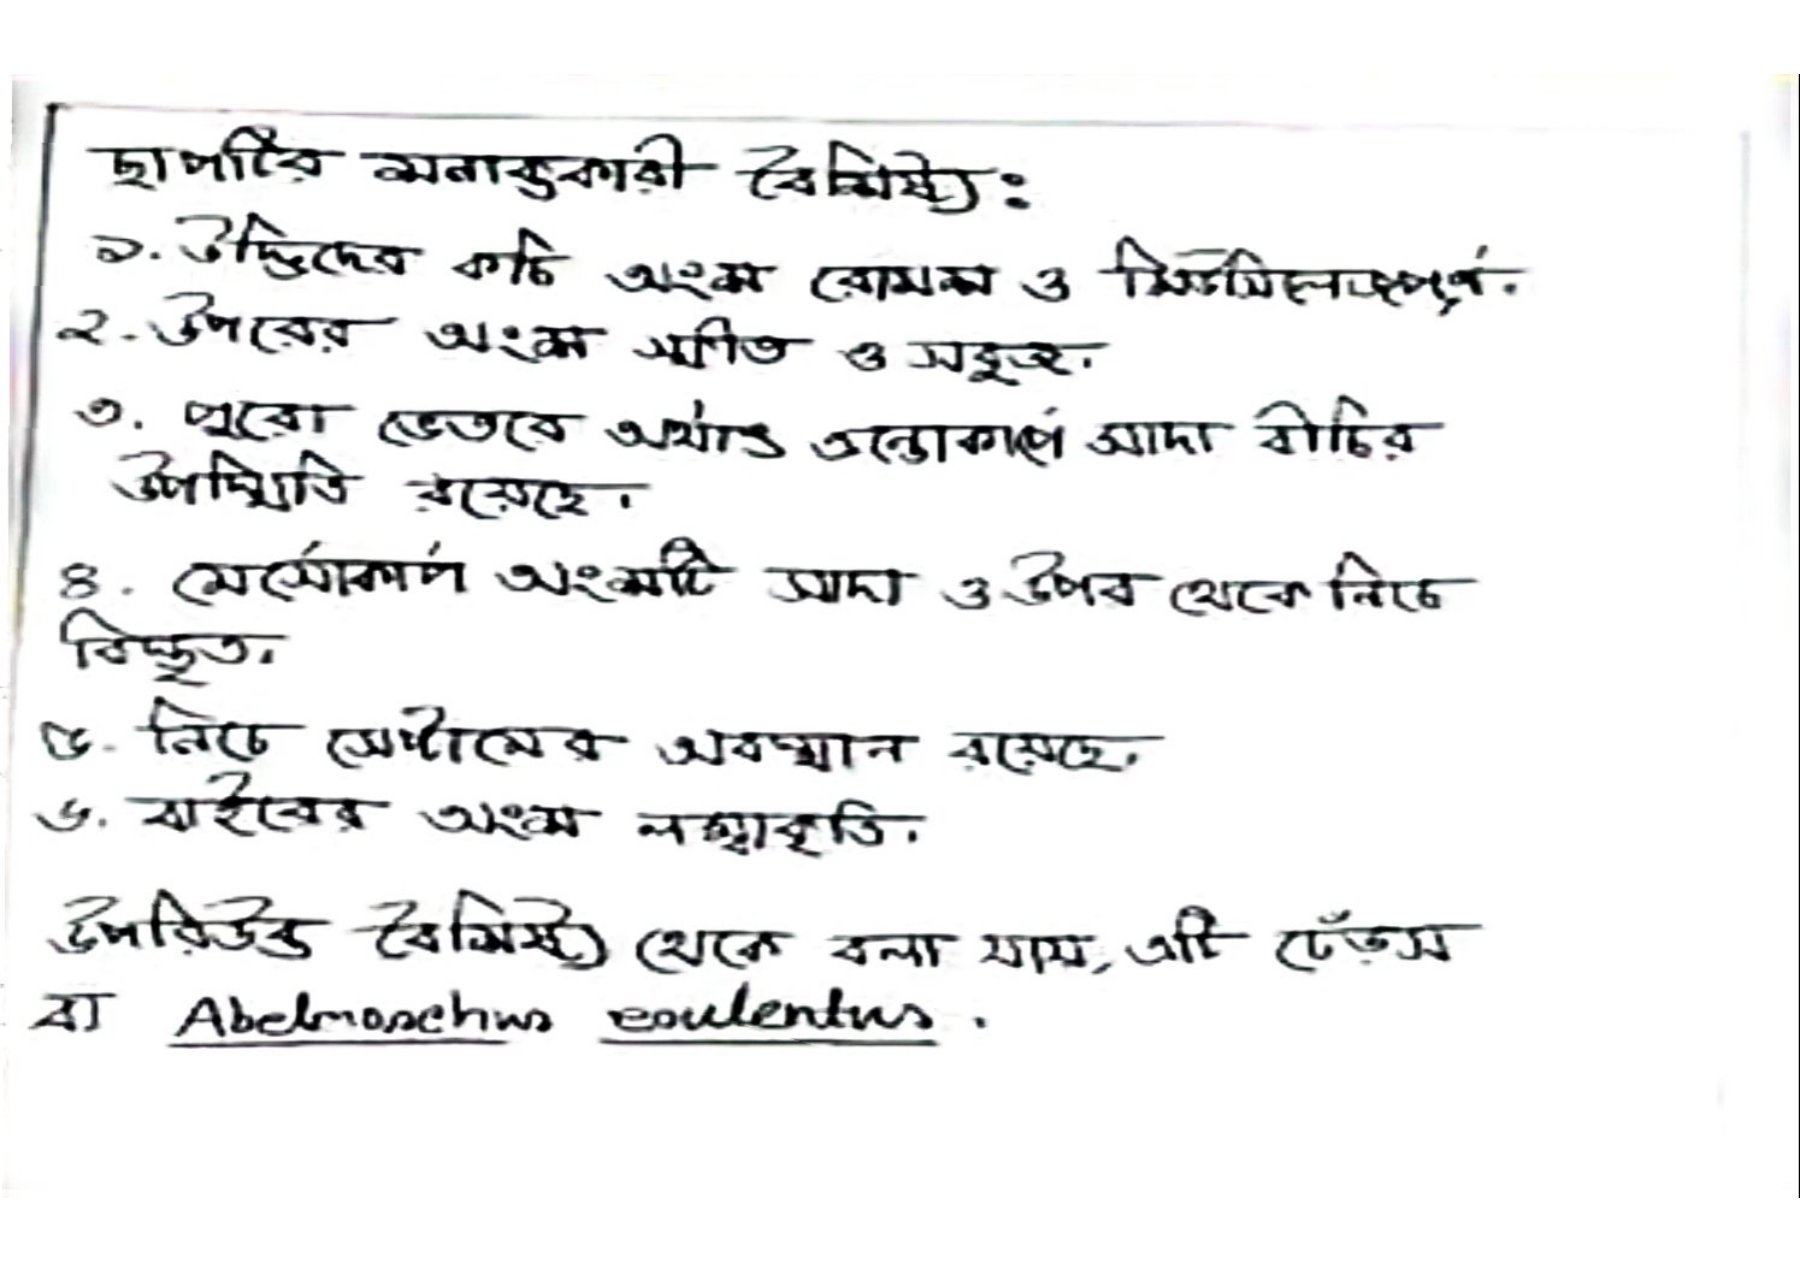 ছাপটির সনাক্তকারী বৈশিষ্ট্য:
১. উদ্ভিদের কচি অংশ রোমশ ও মিউসিলেজপূর্ণ.
২. উপরের অংশ স্ফীত ও সবুজ.
৩. পুরো ভেতরে অর্থাৎ এন্ডোকার্পে সাদা বীচির
উপস্থিতি রয়েছে.
৪. মেসোকার্প অংশটি সাদা ও উপর থেকে নিচে
বিস্তৃত.
৫. নিচে সেপ্টামের অবস্থান রয়েছে.
৬. বাইরের অংশ লম্বাকৃতি.
উপরিউক্ত বৈশিষ্ট্য থেকে বলা যায়, এটি ঢেঁড়স
বা Abelmoschus esculentus.